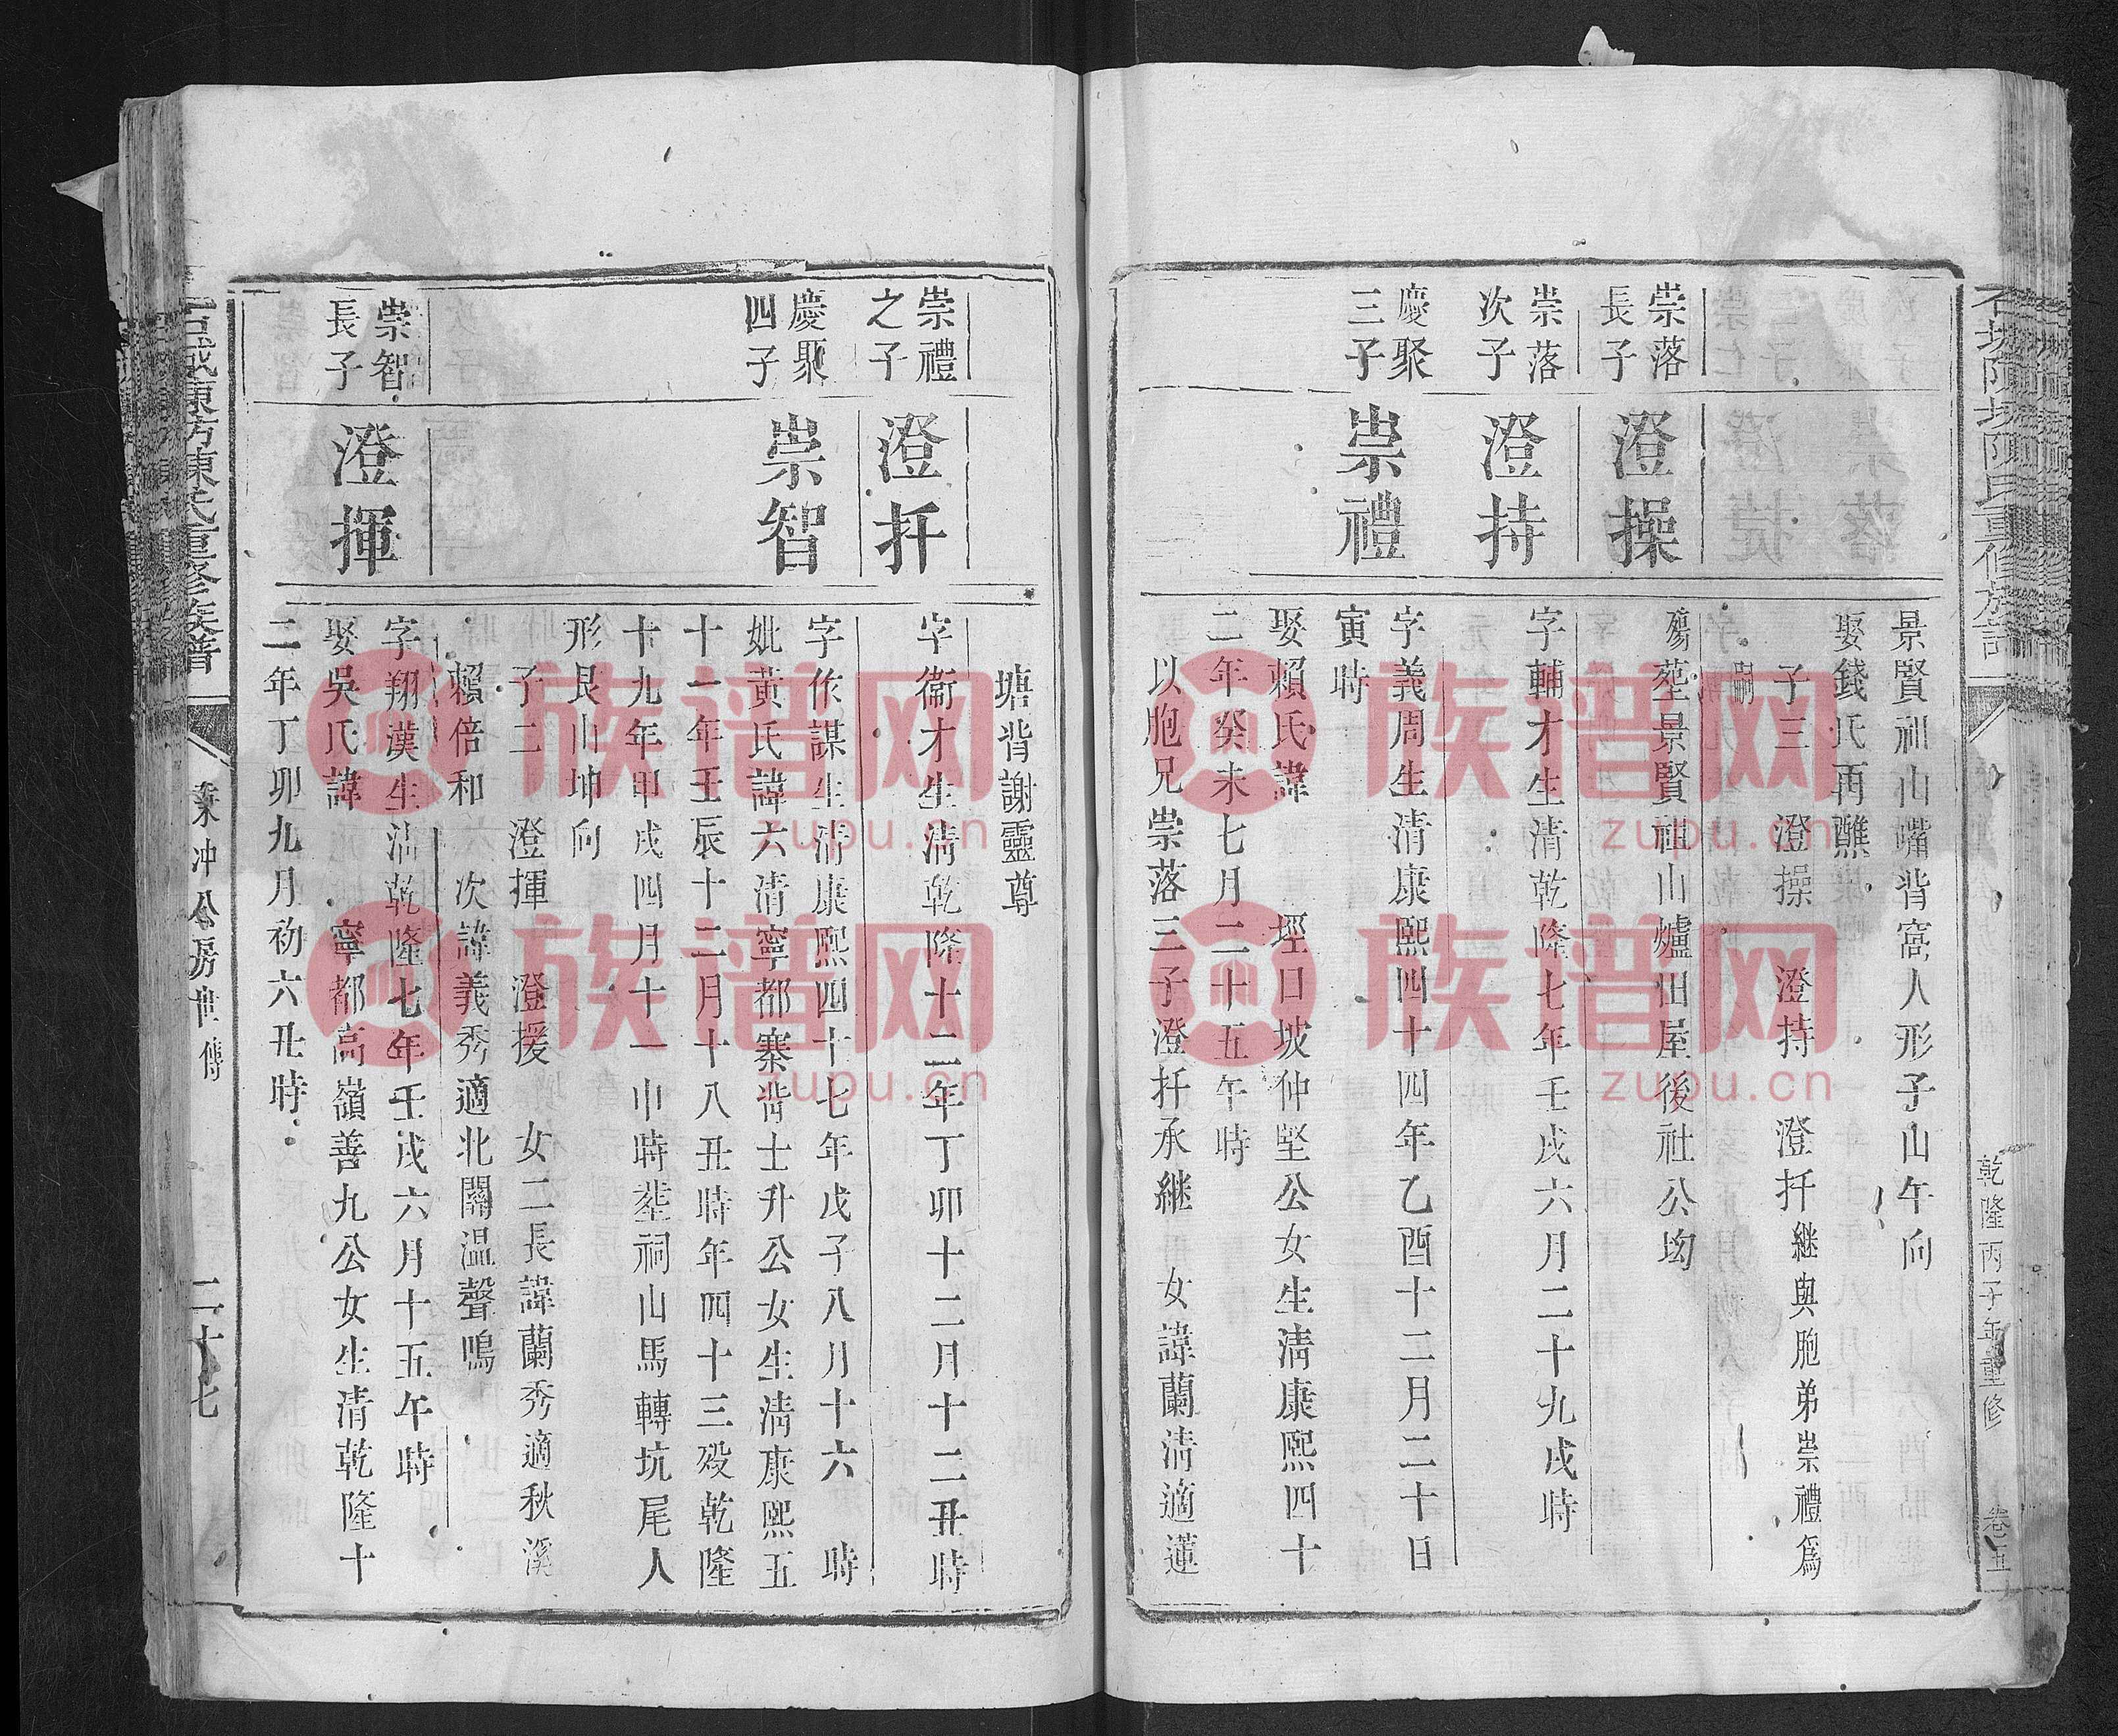 景賢祖山嘴背窩人形子山午向
娶錢氏再醮
子三 澄操 澄持 澄扦繼與胞弟崇禮爲
嗣
崇落
長子
澄操
殤塟景賢祖山爐田屋後社公坳
崇落
次子
澄持
字輔才生清乾隆七年壬戌六月二十九戌時
慶聚
三子
崇禮
字義周生清康熙四十四年乙酉十二月二十日
寅時
娶賴氏諱 坙口坡仲堅公女生清康熙四十
二年癸未七月二十五午時
以胞兄崇落三子澄扦承繼 女諱蘭清適蓮
塘背謝靈尊
崇禮
之子
澄扦
字衞才生清乾隆十二年丁卯十二月十二丑時
慶聚
四子
崇智
字作謀生清康熙四十七年戊子八月十六 時
妣黃氏諱六清寧都寨背士升公女生清康熙五
十一年壬辰十二月十八丑時年四十三歿乾隆
十九年甲戌四月十一巾時塟祠山馬轉坑尾人
形艮山坤向
子二 澄揮 澄援 女二長諱蘭秀適秋溪
賴倍和 次諱義秀適北關温聲鳴
崇智
長子
澄揮
字翔漢生清乾隆七年壬戌六月十五午時
娶吳氏諱 寧都高嶺善九公女生清乾隆十
二年丁卯九月初六丑時
陳氏重修族譜
冲公房世傳
二十七
乾隆丙子年重修
卷五
族谱网
zupu.cn
族谱网
zupu.cn
族谱网
zupu.cn
族谱网
zupu.cn